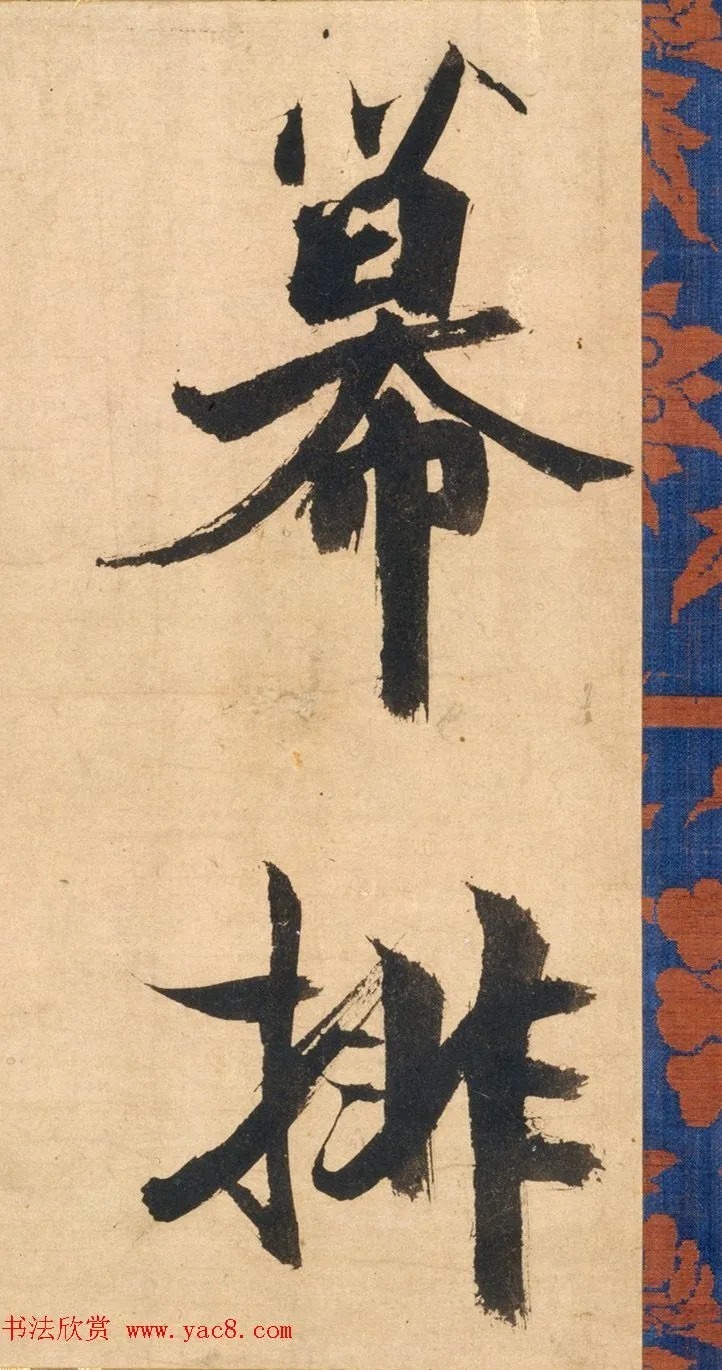 幕
排
书法欣赏 www.yac8.com